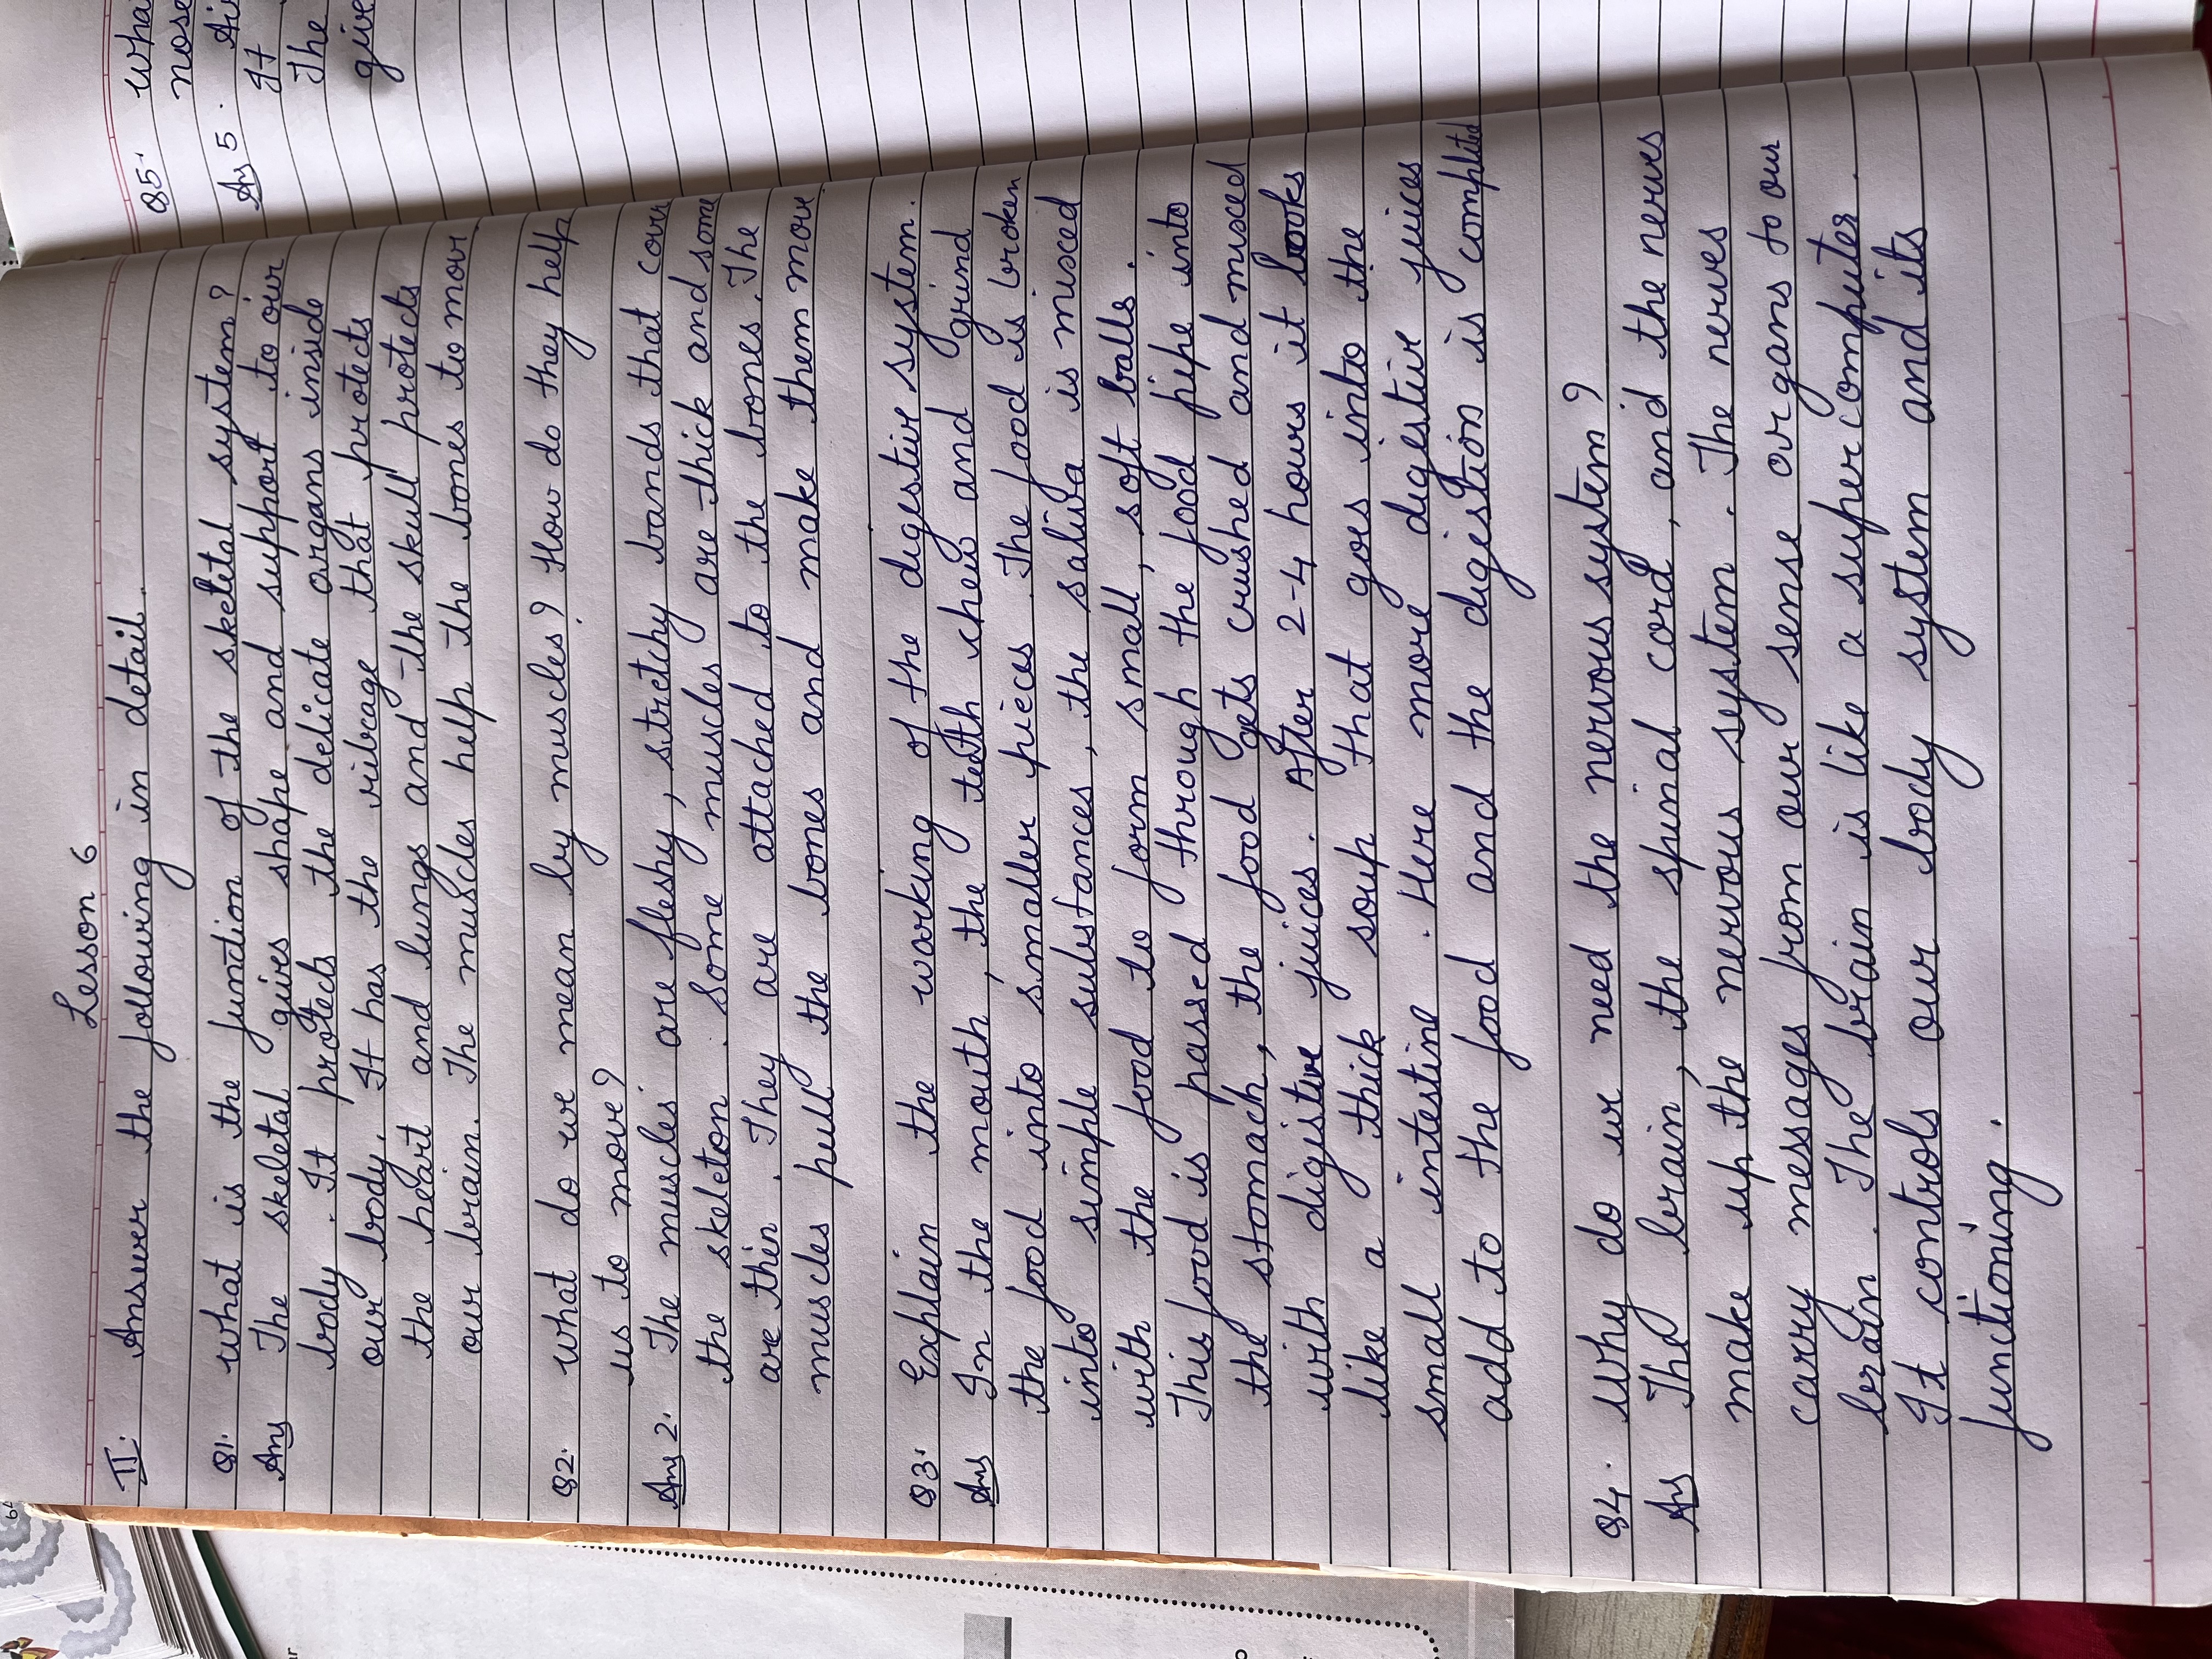 Lesson 6
II. Answer the following in detail.
Q1. what is the function of the skeletal system?
Ans The skeletal gives shape and support to our
body. It protects the delicate organs inside
our body. It has the ribcage that protects
the heart and lungs and the skull protects
our brain. The muscles help the bones to move
Q2. what do we mean by muscles? How do they help
us to move?
Ans 2. The muscles are fleshy, stretchy bands that cover
the skeleton. Some muscles are thick and some
are thin. They are attached to the bones. The
muscles pull the bones and make them move
Q3. Explain the working of the digestive system.
Ans In the mouth, the teeth chew and grind
the food into smaller pieces. The food is broken
into simple substances, the saliva is mixed
with the food to form small, soft balls.
This food is passed through the food pipe into
the stomach, the food gets crushed and mixed
with digistive juices. After 2-4 hours it looks
like a thick soup that goes into the
small intestine. Here more digestive juices
add to the food and the digestion is complited
Q4. Why do we need the nervous system?
Ans The brain, the spinal cord, and the nerves
make up the nervous system. The nerves
carry messages from our sense organs to our
brain. The brain is like a supercomputer.
It controls our body system and its
functioning.
Q5. wha
nose
Ans 5. Air
It
The
give